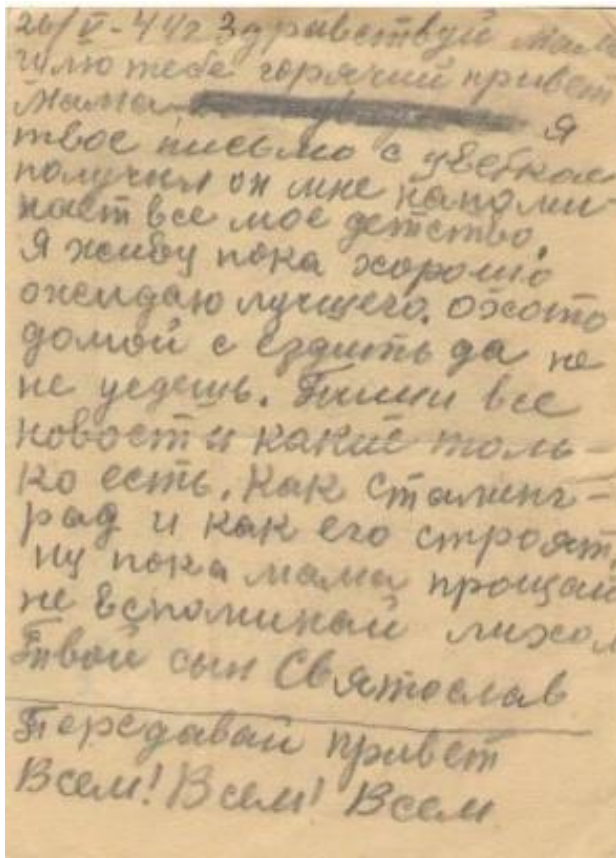 26/V-44г Здравствуй мама
шлю тебе горячий привет
мама Я
твое письмо с цветком
получил он мне напоми-
нает все мое детство.
Я живу пока хорошо
ожидаю лучшего. охото
домой с ездить да не
не уедешь. Пиши все
новости какие толь-
ко есть. Как Сталинг-
рад и как его строят,
ну пока мама прощай
не вспоминай лихом
Твой сын Святослав
Передавай привет
Всем! Всем! Всем